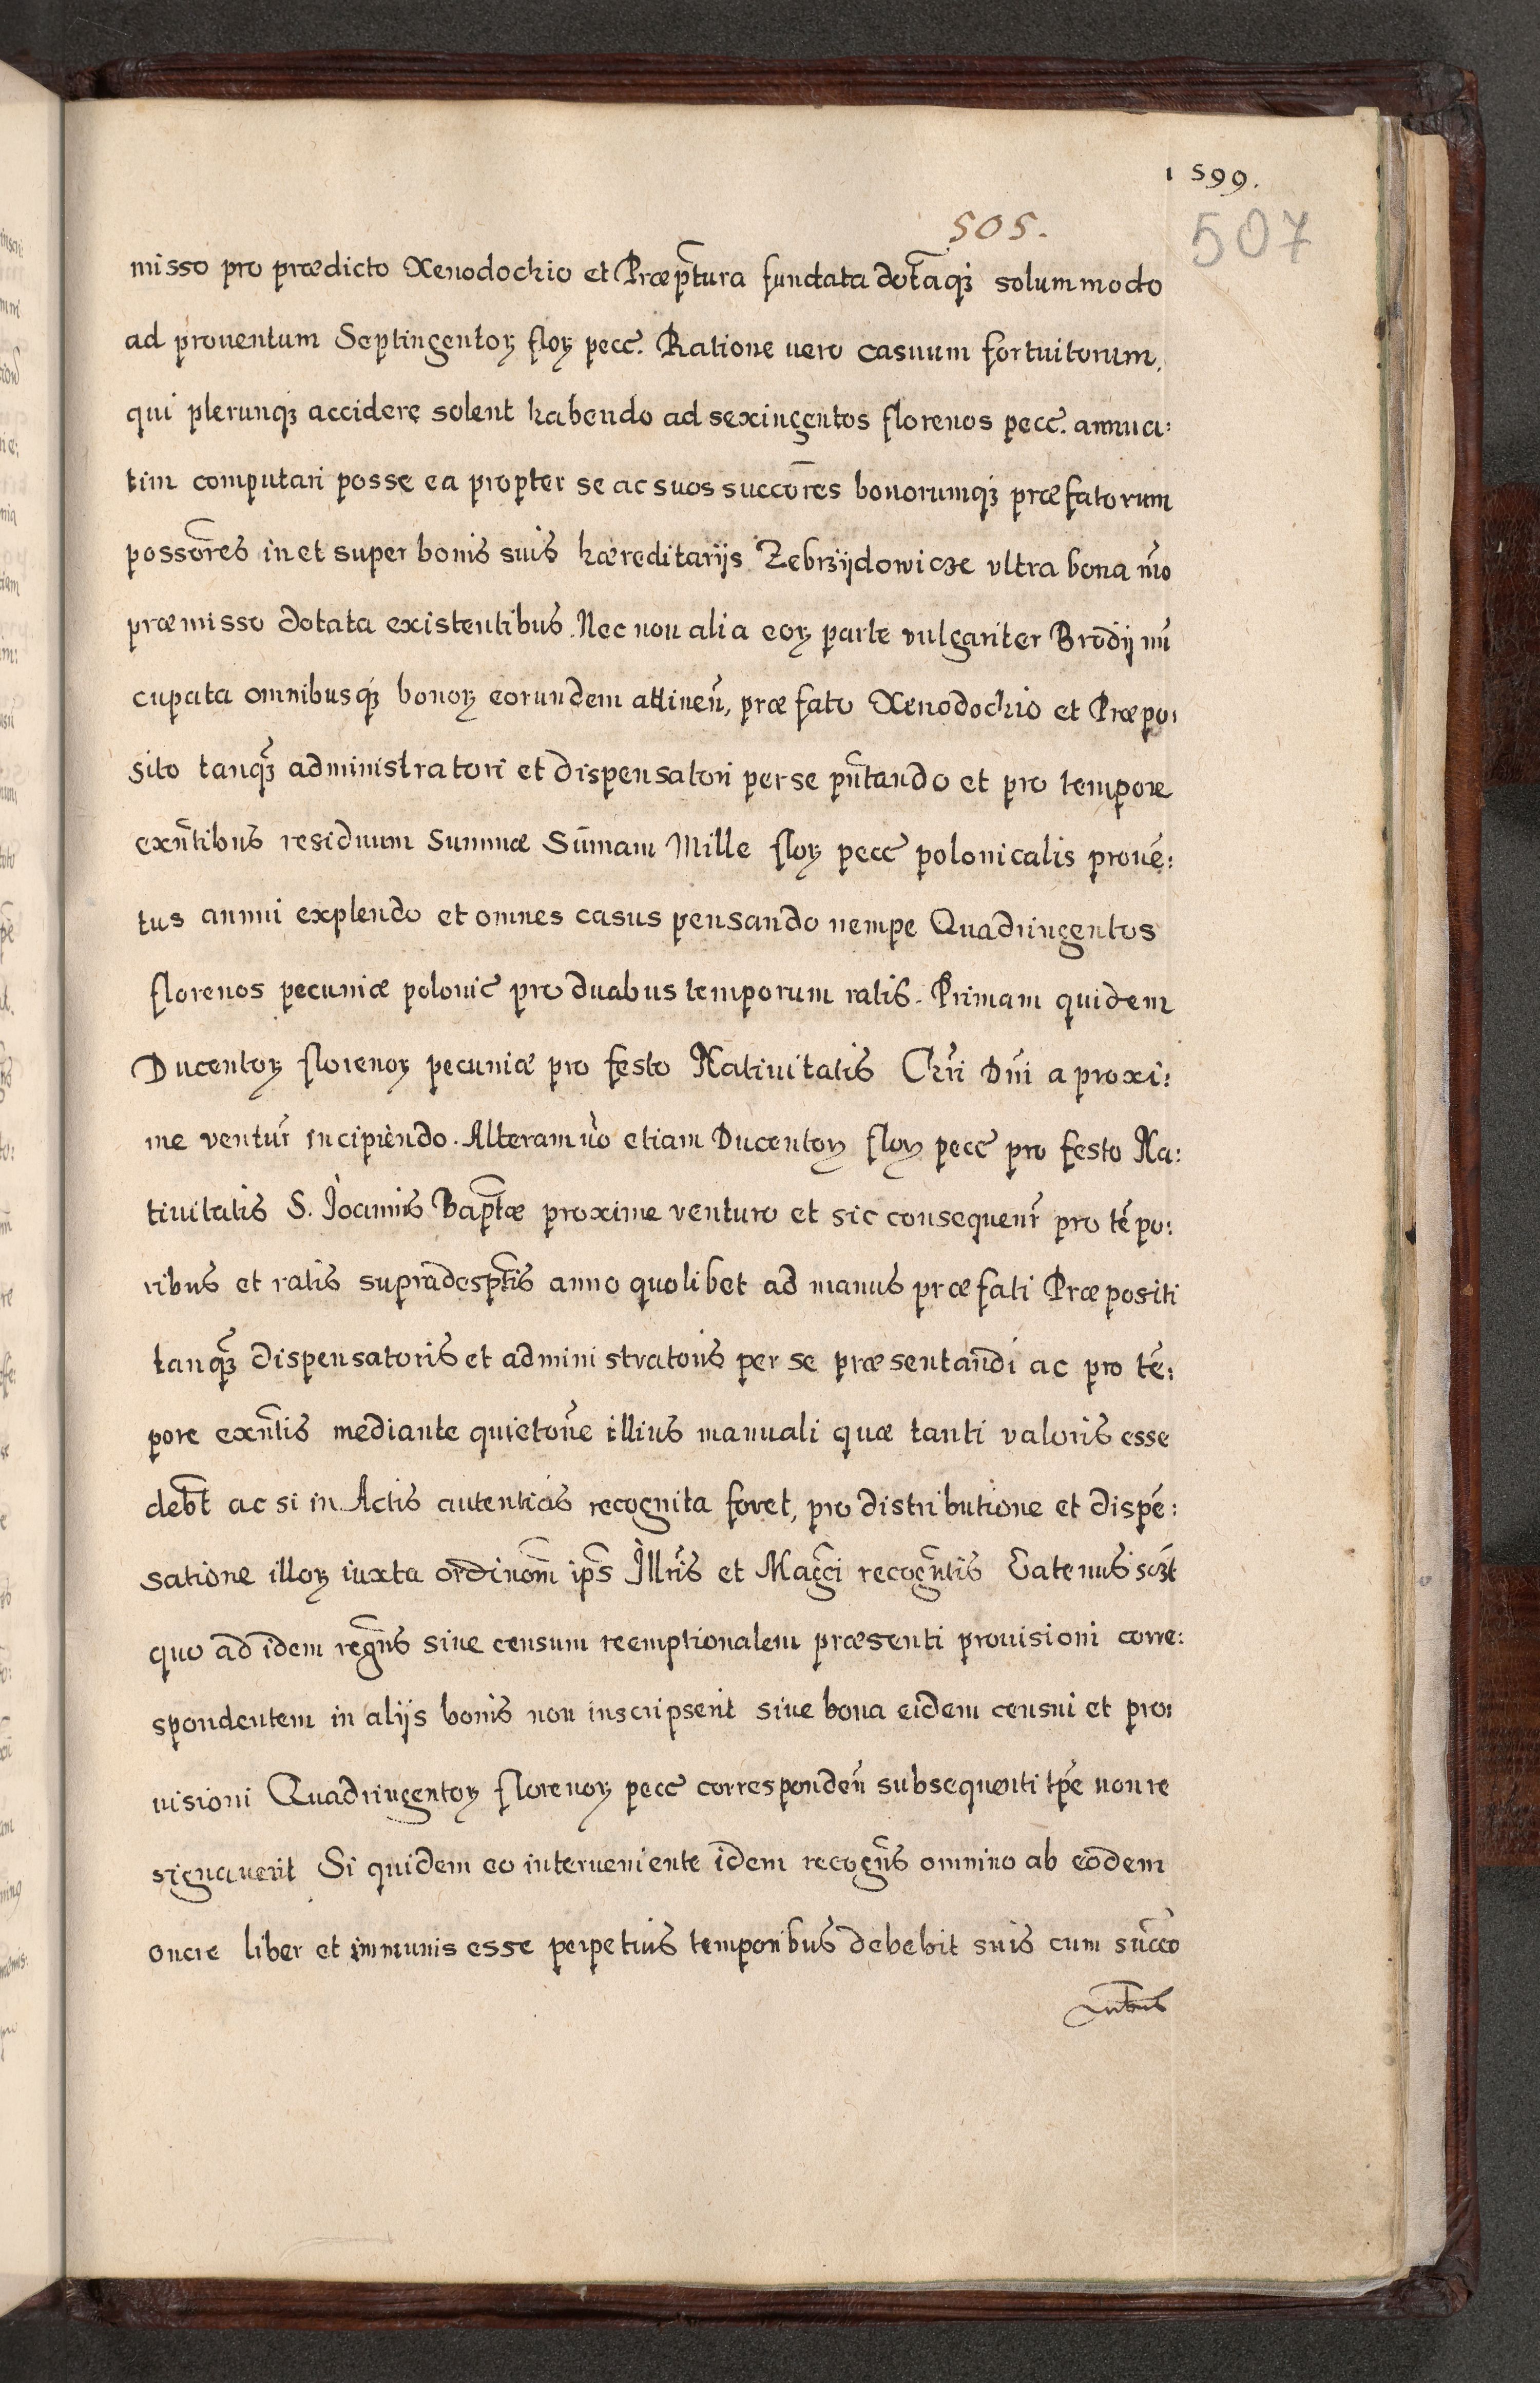 1599.
505.
507
misso pro prædicto Xenodochio et Præp͠tura fundata dot͠aq̃ solummodo
ad prouentum Septingentoꝝ floꝝ pecc. Ratione uero casuum fortuitorum,
qui plerunqꝫ accidere solent habendo ad sexingentos florenos pecc. annua:
tim computari posse ea propter se ac suos succo͠res bonorumqꝫ præfatorum
posso͠res in et super bonis suis hæreditarijs Zebrzÿdowicze vltra bona m̃o
præmisso dotata existentibus. Nec non alia eoꝝ parte vulgariter Brodÿ nũ
cupata omnibusqꝫ bonoꝝ eorundem attineñ, præfato Xenodochio et Præpo:
sito tanq̃ꝫ administratori et dispensatori per se pñtando et pro tempore
exñtibus residuum Summæ Sũmam Mille floꝝ pecc polonicalis prouẽ:
tus annui explendo et omnes casus pensando nempe Quadringentos
florenos pecuniæ polonic pro duabus temporum ratis. Primam quidem
Ducentoꝝ florenoꝝ pecuniæ pro festo Natiuitatis Chri Dñi a proxi:
me ventur̃ incipiendo. Alteram ùo etiam Ducentoꝝ floꝝ pecc pro festo Na:
tiuitatis S. Joannis Bap͠tæ proxime venturo et sic consequenr̃ pro tẽpo:
ribus et ratis supradesp͠tis anno quolibet ad manus præfati Præpositi
tanq̃ꝫ dispensatoris et administratoris per se præsentandi ac pro tẽ:
pore exñtis mediante quietoñe illius manuali quæ tanti valoris esse
deb͠t ac si in Actis autenticis recognita foret, pro distributione et dispẽ:
satione illoꝝ iuxta ordino͠m ip͠s Illr̃is et Mag͠ci recog͠ntis Eatenus sc͠ꝫt
quo ad idem reg͠ns siue censum reemptionalem præsenti prouisioni corre:
spondentem in alijs bonis non inscripserit siue bona eidem censui et pro:
uisioni Quadringentoꝝ florenoꝝ pecc correspondeñ subsequenti tp̃e non re
signauerit Si quidem eo interueniente idem recog͠ns omnino ab eodem
onere liber et immunis esse perpetuis temporibus debebit suis cum succo